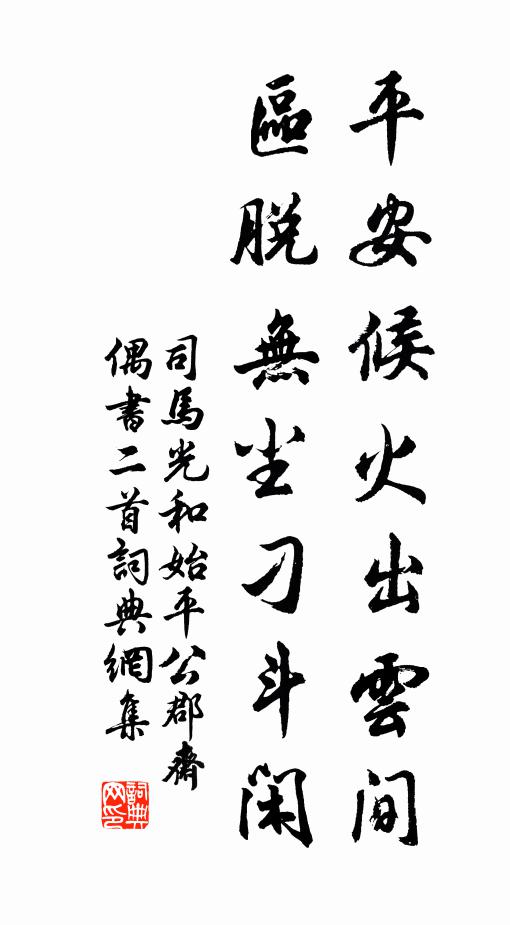 平安候火出雲间
區脱無尘刁斗闲
司馬光和始平公郡齋
偶書二首詞典網集
詞典网印